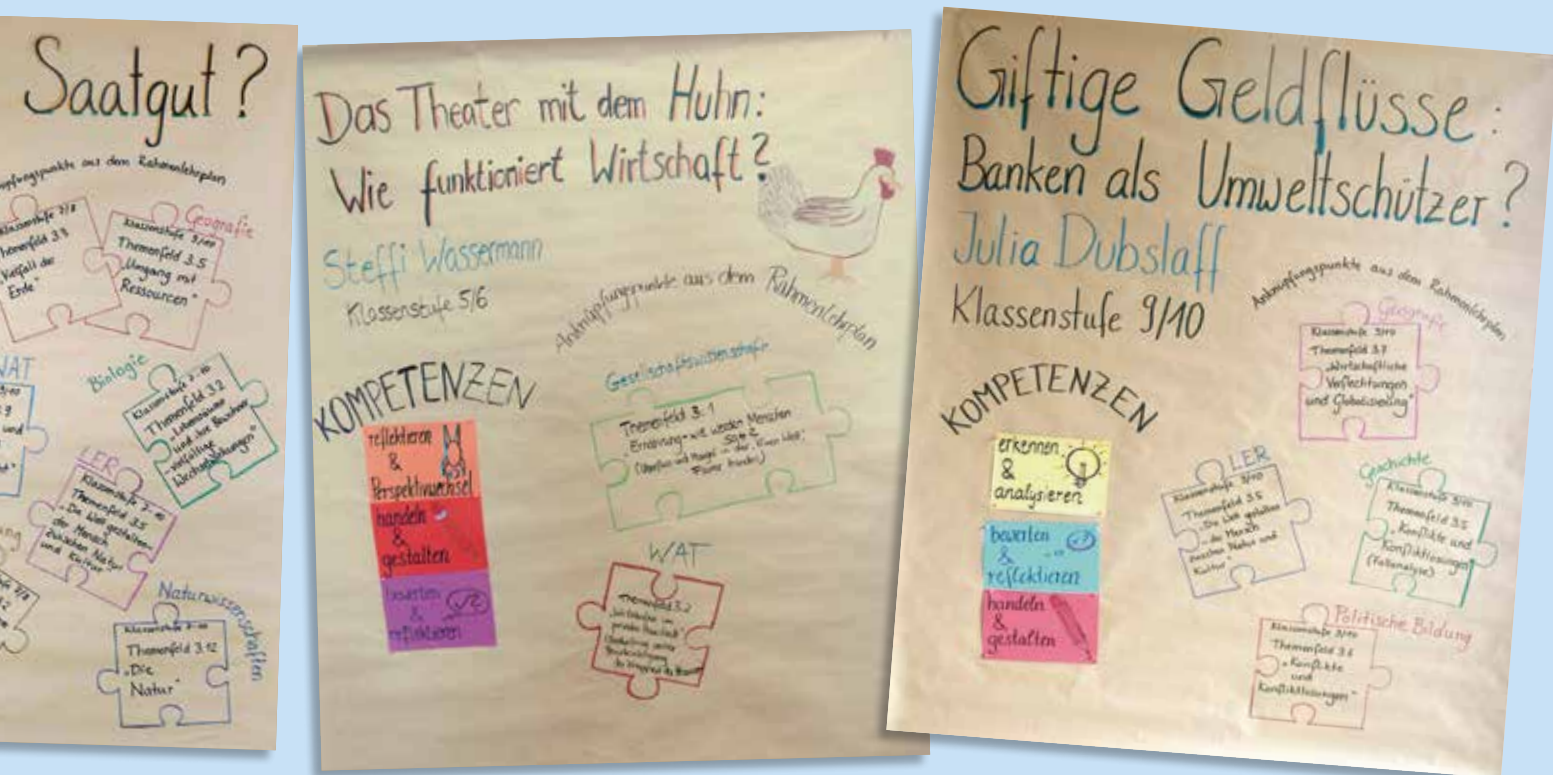 Saatgut?
aus dem Rahmenlehrplan
Klassenstufe 7/8
Themenfeld 3.3
Vielfalt der
Erde"
Geografie
Klassenstufe 9/10
Themenfeld 3.5
„Umgang mit
Ressourcen"
WAT
und
Biologie
Klassenstufe 7-10
Themenfeld 3.2
„Lebensräume
und ihre Bewohner
-vielfältige
Wechselwirkungen"
LER
Klassenstufe 7-10
Themenfeld 3.5
„Die Welt gestalten
der Mensch
zwischen Natur
und Kultur"
Naturwissenschaften
Klassenstufe 7-10
Themenfeld 3.12
„Die
Natur"
Das Theater mit dem Huhn:
Wie funktioniert Wirtschaft?
Steffi Wassermann
Klassenstufe 5/6
Anknüpfungspunkte aus dem Rahmenlehrplan
KOMPETENZEN
reflektieren
&
Perspektivwechsel
handeln
&
gestalten
bewerten
&
reflektieren
Gesellschaftswissenschaften
Themenfeld 3.1
„Ernährung - wie werden Menschen
satt?
(Überfluss und Mangel in der „Einen Welt",
Fairer Handel)
WAT
Themenfeld 3.2
privaten Haushalt"
Giftige Geldflüsse:
Banken als Umweltschützer?
Julia Dubslaff
Klassenstufe 9/10
Anknüpfungspunkte aus dem Rahmenlehrplan
KOMPETENZEN
erkennen
&
analysieren
bewerten
&
reflektieren
handeln
&
gestalten
Geografie
Klassenstufe 9/10
Themenfeld 3.7
„Wirtschaftliche
Verflechtungen
und Globalisierung"
LER
Klassenstufe 9/10
Themenfeld 3.5
„Die Welt gestalten
- der Mensch
zwischen Natur und
Kultur"
Geschichte
Klassenstufe 9/10
Themenfeld 3.5
„Konflikte und
Konfliktlösungen"
(Fallanalyse)
Politische Bildung
Klassenstufe 9/10
Themenfeld 3.6
„Konflikte
und
Konfliktlösungen"